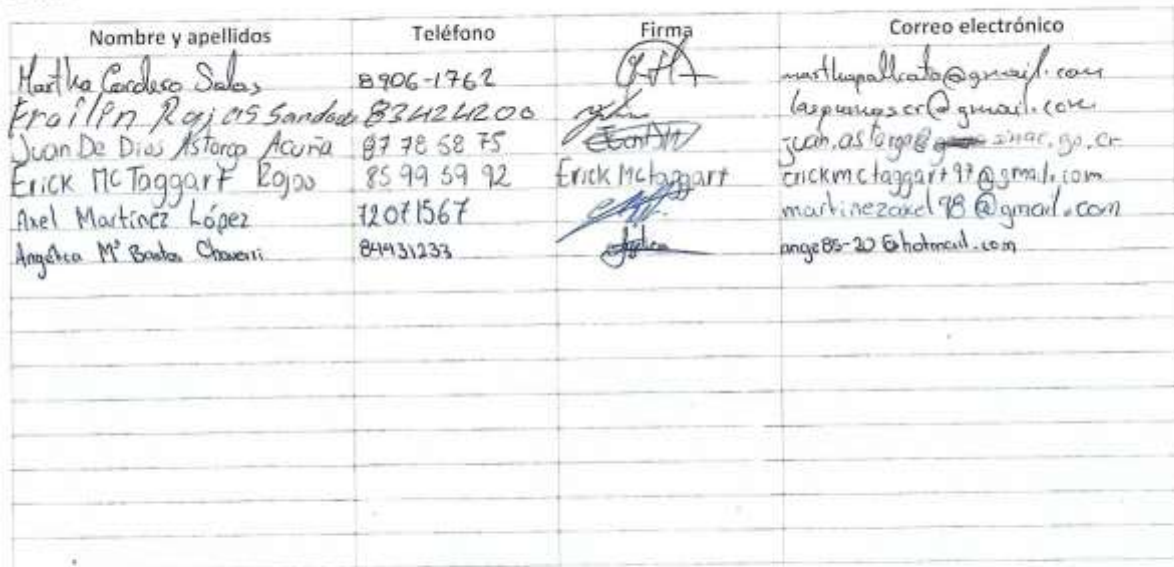 Nombre y apellidos Teléfono Firma Correo electrónico
Martha Cordero Salas 8906-1762
Frailin Rojas Sandov 83424200 laspumascr@gmail.com
Juan De Dios Astorga Acuña 87 78 58 75 juan.astorga@sinac.go.cr
Erick McTaggart Rojas 85 99 59 92 Erick Mctaggart erickmctaggart97@gmail.com
Axel Martínez López 72071567 martinezaxel98@gmail.com
Angélica Mª Bastos Chaverri 84431233 ange85-20@hotmail.com